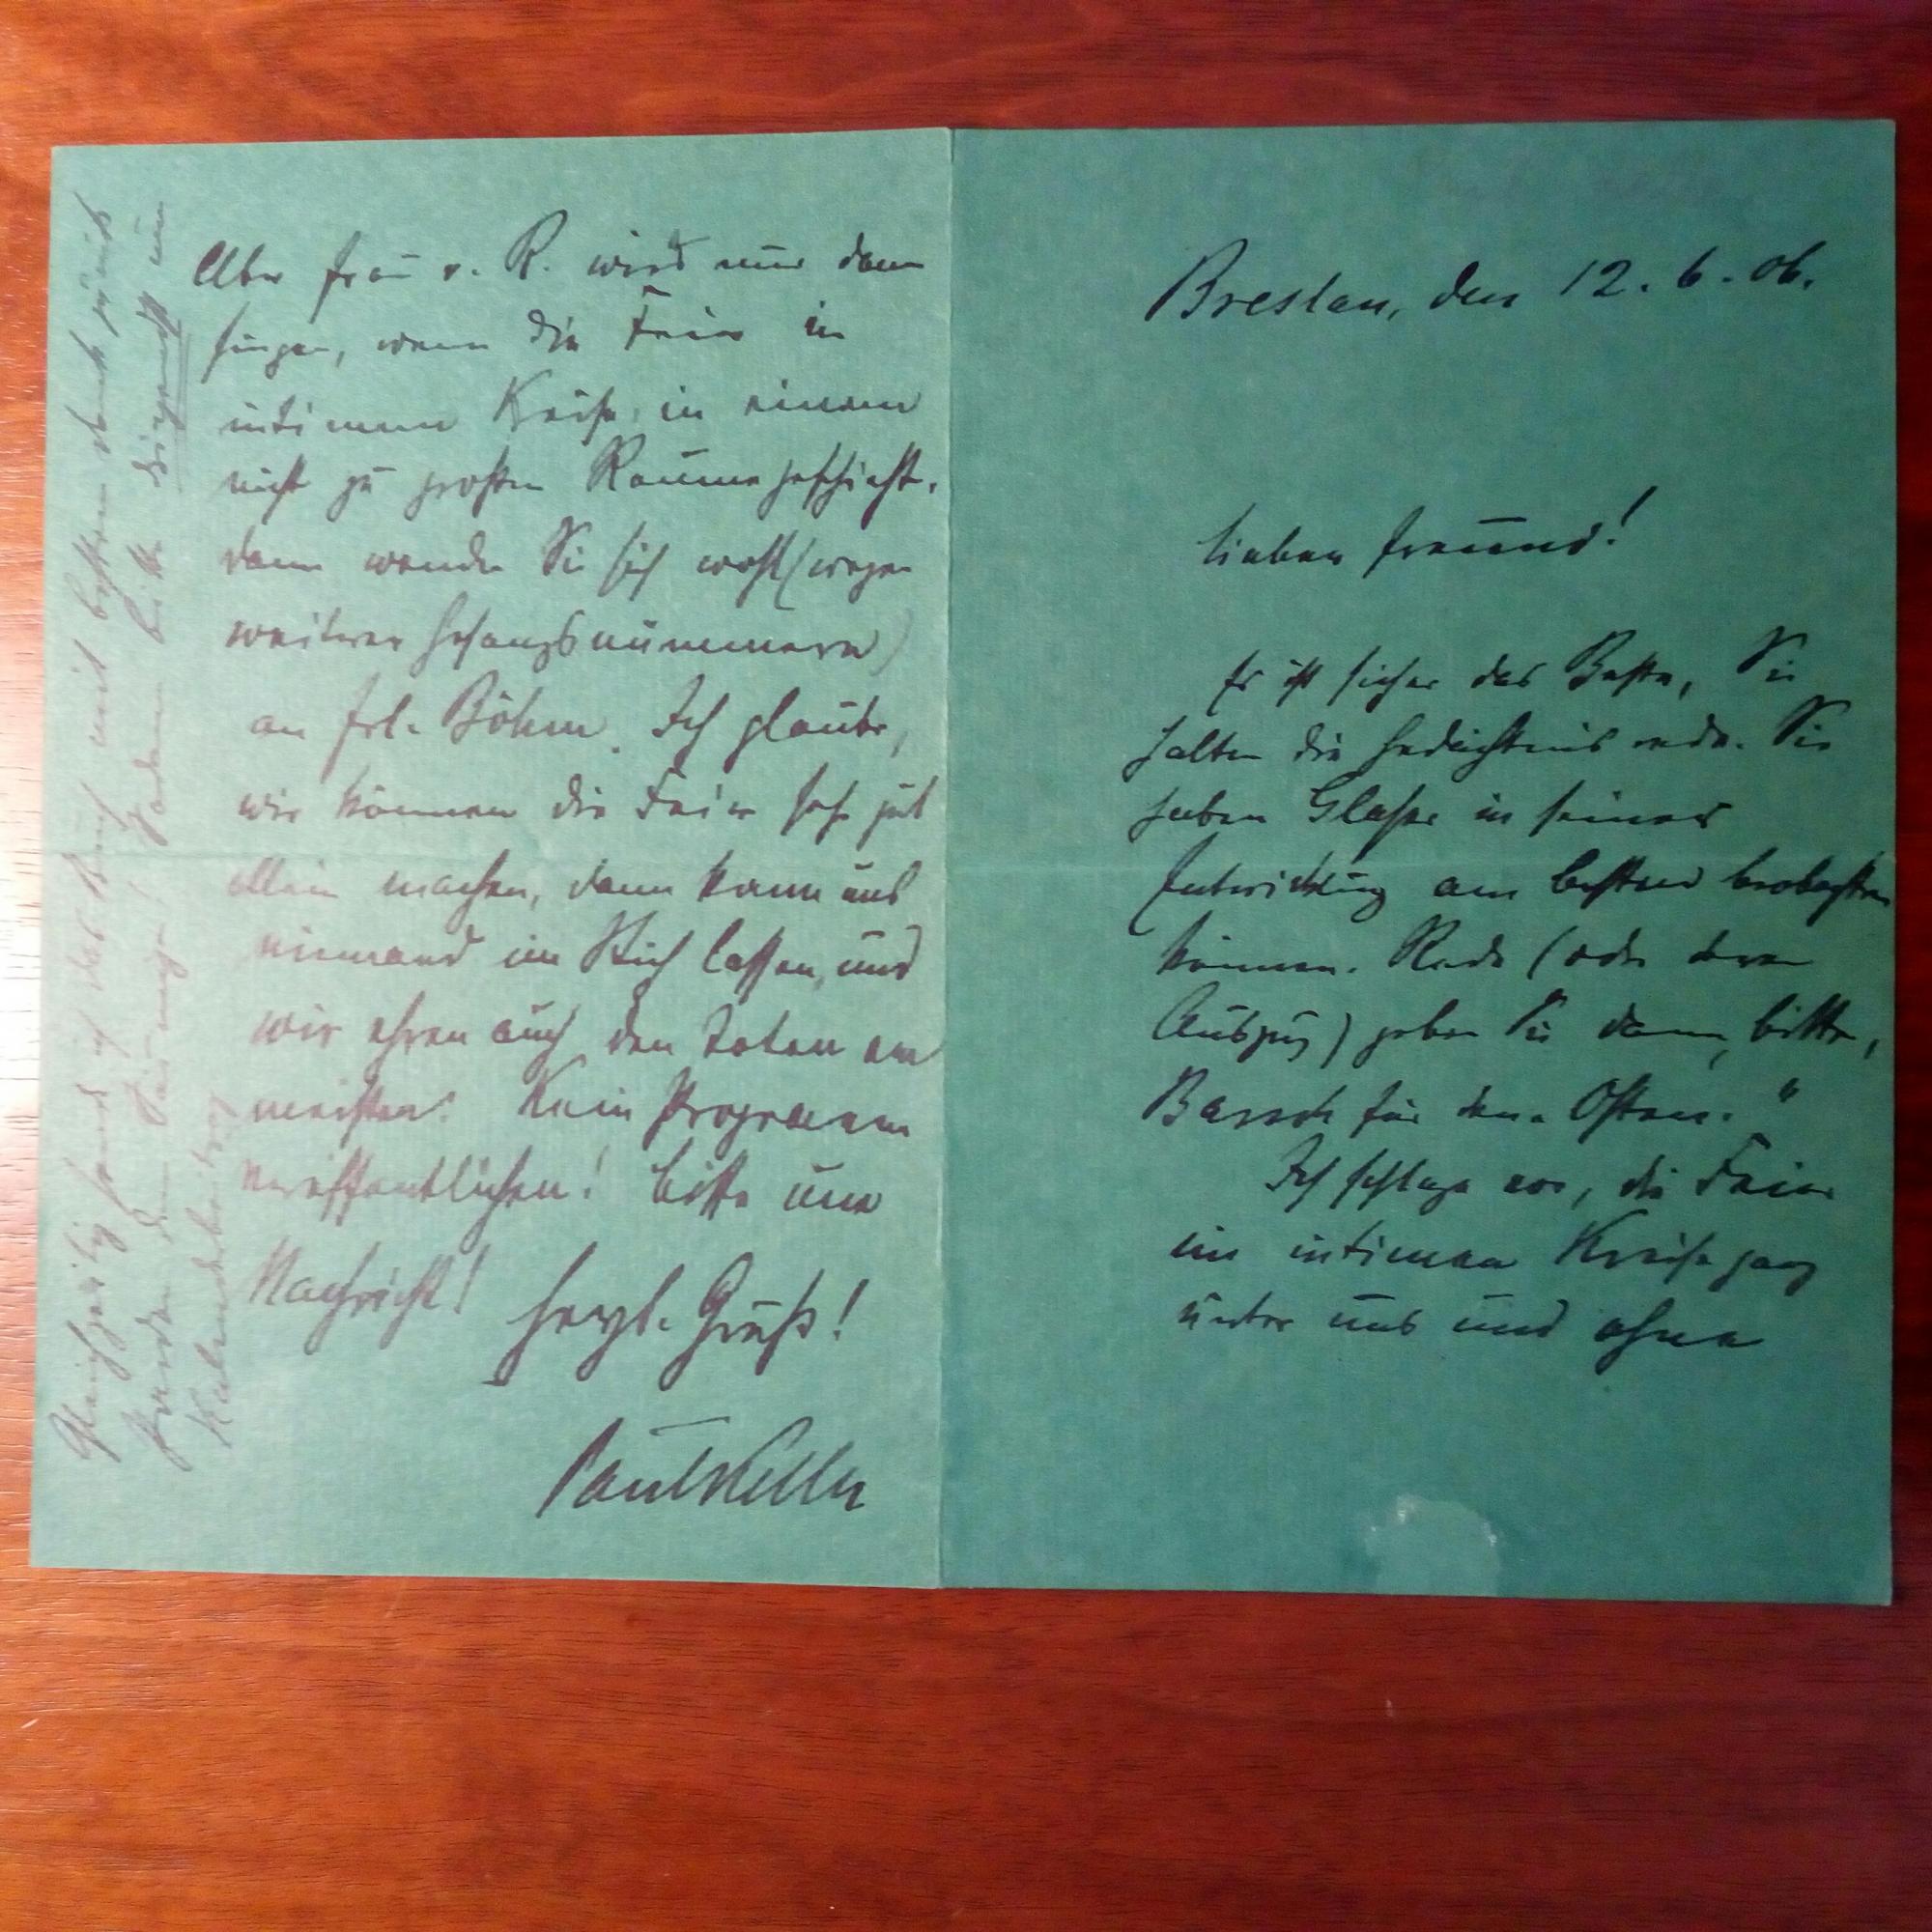 Breslau, den 12. 6. 06.
Lieber Freund!
Es ist sicher das Beste, Sie
halten die Gedächtnisrede. Sie
haben Glaser in seiner
Entwicklung am besten beobachten
können. Rede (oder deren
Auszug) geben Sie dann, bitte,
Barsch für den „Osten."
Ich schlage vor, die Feier
im intimen Kreise ganz
unter uns und ohne
Aber Frau v. R. wird nur dann
singen, wenn die Feier in
intimem Kreise, in einem
nicht zu großen Raume geschieht.
Dann wenden Sie sich wohl (wegen
weiterer Gesangsnummern)
an Frl. Böhm. Ich glaube,
wir können die Feier sehr gut
allein machen, dann kann uns
niemand im Stich lassen, und
wir ehren auch den Toten am
meisten. Kein Programm
veröffentlichen! Bitte um
Nachricht! Herzl. Gruß!
Paul Keller
Gleichzeitig sende ich das Buch mit bestem Dank zurück
bitte dringend um
Kalenderbeitrag